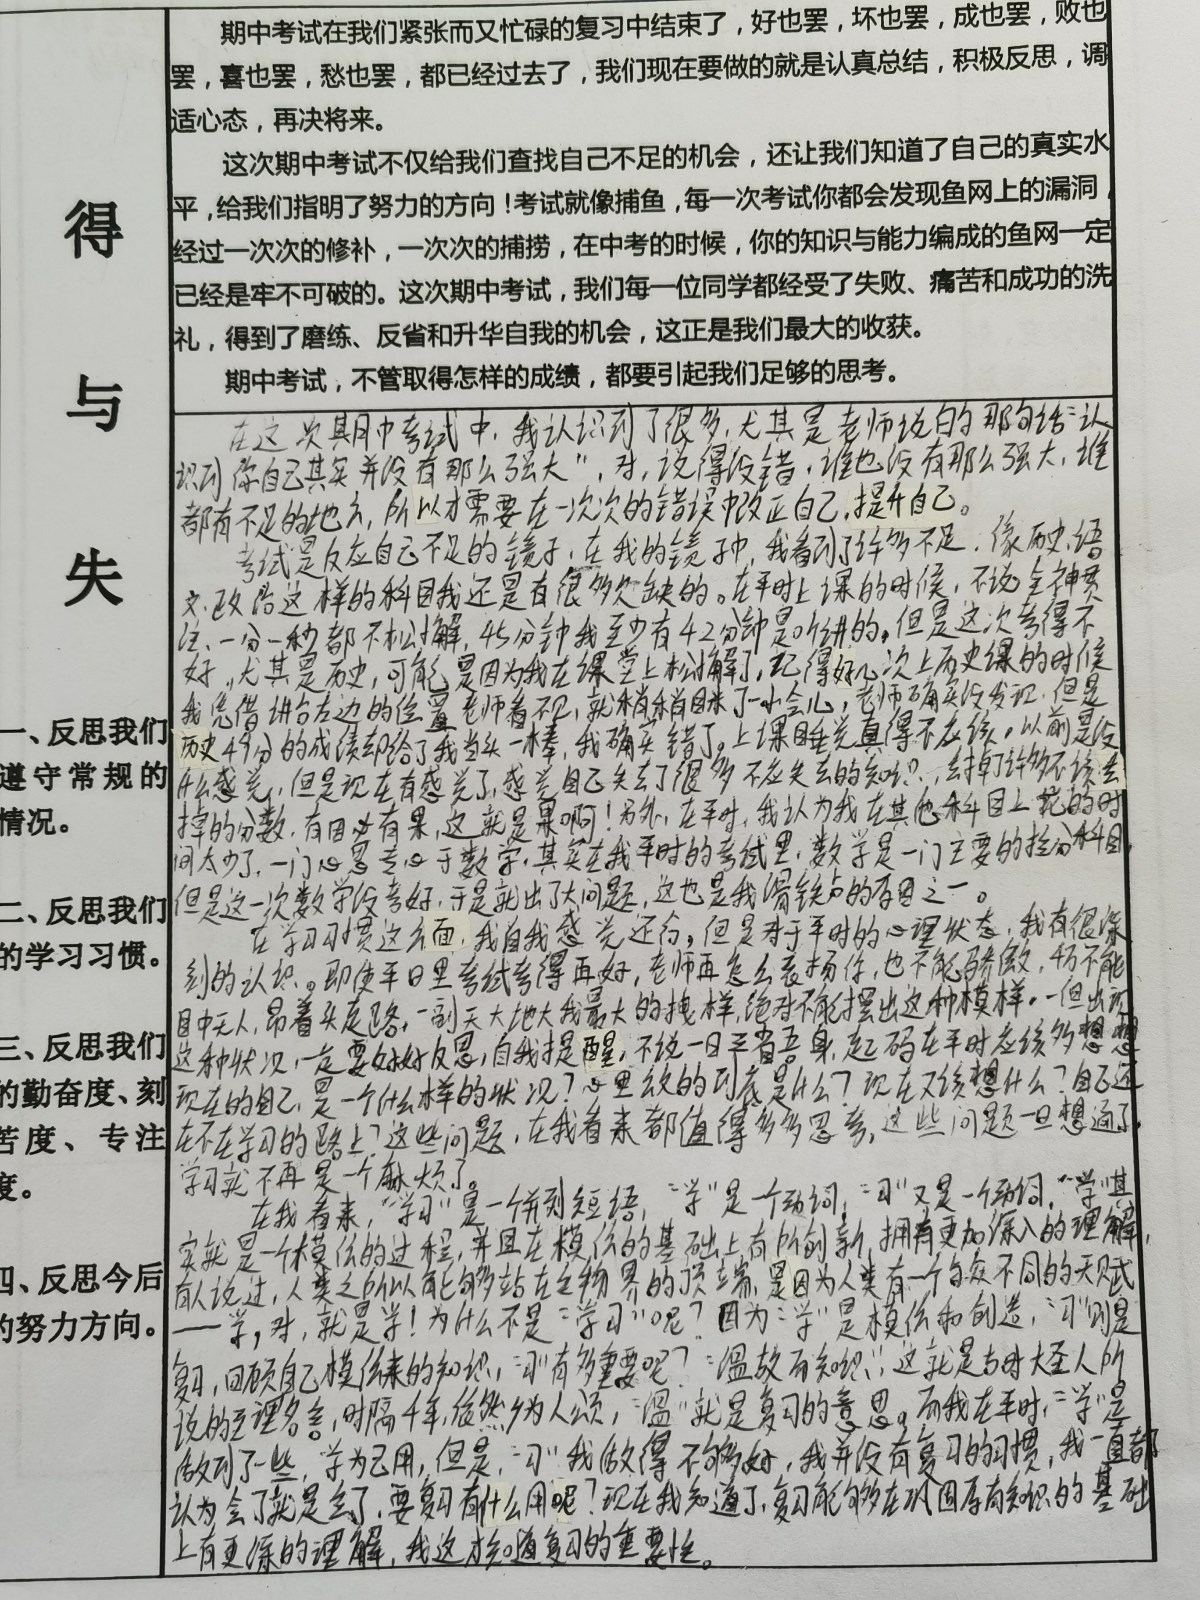 得
与
失
一、反思我们
遵守常规的
情况。
二、反思我们
的学习习惯。
三、反思我们
的勤奋度、刻
苦度、专注
度。
四、反思今后
的努力方向。
期中考试在我们紧张而又忙碌的复习中结束了，好也罢，坏也罢，成也罢，败也
罢，喜也罢，愁也罢，都已经过去了，我们现在要做的就是认真总结，积极反思，调
适心态，再决将来。
这次期中考试不仅给我们查找自己不足的机会，还让我们知道了自己的真实水
平，给我们指明了努力的方向！考试就像捕鱼，每一次考试你都会发现鱼网上的漏洞，
经过一次次的修补，一次次的捕捞，在中考的时候，你的知识与能力编成的鱼网一定
已经是牢不可破的。这次期中考试，我们每一位同学都经受了失败、痛苦和成功的洗
礼，得到了磨练、反省和升华自我的机会，这正是我们最大的收获。
期中考试，不管取得怎样的成绩，都要引起我们足够的思考。
在这次期中考试中，我认识到了很多，尤其是老师说的那句话“认
识到你自己其实并没有那么强大”，对，说得没错，谁也没有那么强大，谁
都有不足的地方，所以才需要在一次次的错误中改正自己，提升自己。
考试是反应自己不足的镜子，在我的镜子中，我看到了许多不足，像历史、语
文、政治这样的科目我还是有很多欠缺的。在平时上课的时候，不说全神贯
注，一分一秒都不松懈，45分钟我至少有42分钟是听讲的。但是这次考得不
好，尤其是历史，可能是因为我在课堂上松懈了，记得好几次上历史课的时候
我凭借讲台左边的位置老师看不见，就稍稍眯了一小会儿，老师确实没发现，但是
历史49分的成绩却给了我当头一棒，我确实错了。上课睡觉真得不应该。以前是没
什么感觉，但是现在有感觉了，感觉自己失去了很多不应失去的知识，去掉了许多不该去
掉的分数，有因必有果，这就是果啊！另外，在平时，我认为我在其他科目上花的时
间太少了，一门心思专心于数学，其实在我平时的考试里，数学是一门主要的拉分科目，
但是这一次数学没考好，于是就出了大问题，这也是我滑铁卢的原因之一。
在学习习惯这方面，我自我感觉还行，但是对于平时的心理状态，我有很深
刻的认识。即使平日里考试考得再好，老师再怎么表扬你，也不能骄傲，切不能
目中无人，昂着头走路，一副天大地大我最大的拽样，绝对不能摆出这种模样。一但出现
这种状况，一定要好好反思，自我提醒，不说一日三省吾身，起码在平时应该多想想
现在的自己，是一个什么样的状况？心里放的到底是什么？现在又该想什么？自己还
在不在学习的路上？这些问题，在我看来都值得多多思考，这些问题一旦想通了，
学习就不再是一个麻烦了。
在我看来，“学习”是一个并列短语，“学”是一个动词，“习”又是一个动词，“学”其
实就是一个模仿的过程，并且在模仿的基础上有所创新，拥有更加深入的理解，
有人说过，人类之所以能够站在生物界的顶端，是因为人类有一个与众不同的天赋
——学，对，就是学！为什么不是“学习”呢？因为“学”是模仿和创造，“习”则是
复习，回顾自己模仿来的知识，“习”有多重要呢？“温故而知识”，这就是古时大圣人所
说的至理名言，时隔千年，依然为人颂，“温”就是复习的意思。而我在平时，“学”是
做到了一些，学为己用，但是，“习”我做得不够好，我并没有复习的习惯，我一直都
认为会了就是会了，要复习有什么用呢？现在我知道了，复习能够在巩固原有知识的基础
上有更深的理解，我这才知道复习的重要性。